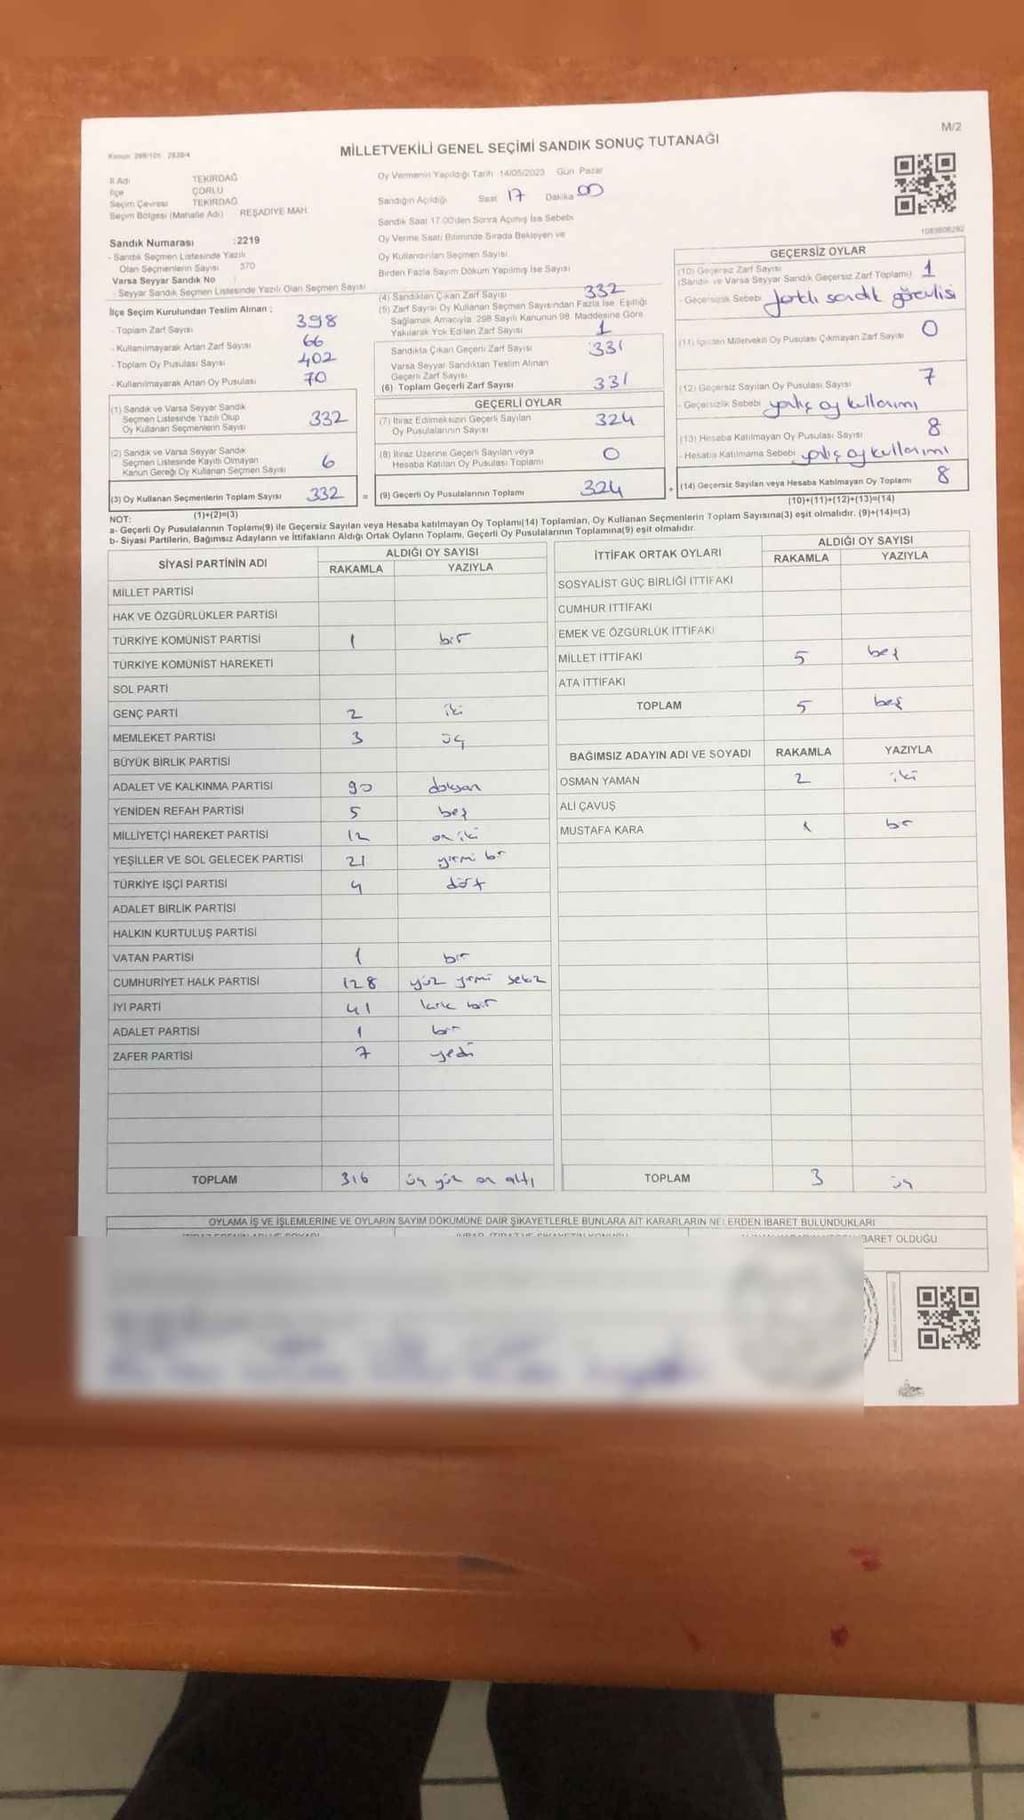 M/2
Kanun: 298/105 2839/4
MİLLETVEKİLİ GENEL SEÇİMİ SANDIK SONUÇ TUTANAĞI
İl Adı TEKİRDAĞ
İlçe ÇORLU
Seçim Çevresi TEKİRDAĞ
Seçim Bölgesi (Mahalle Adı) REŞADİYE MAH.
Sandık Numarası :2219
- Sandık Seçmen Listesinde Yazılı
Olan Seçmenlerin Sayısı 370
Varsa Seyyar Sandık No
- Seyyar Sandık Seçmen Listesinde Yazılı Olan Seçmen Sayısı
İlçe Seçim Kurulundan Teslim Alınan ;
- Toplam Zarf Sayısı 398
- Kullanılmayarak Artan Zarf Sayısı 66
- Toplam Oy Pusulası Sayısı 402
- Kullanılmayarak Artan Oy Pusulası 70
(1) Sandık ve Varsa Seyyar Sandık
Seçmen Listesinde Yazılı Olup
Oy Kullanan Seçmenlerin Sayısı 332
(2) Sandık ve Varsa Seyyar Sandık
Seçmen Listesinde Kayıtlı Olmayan
Kanun Gereği Oy Kullanan Seçmen Sayısı 6
(3) Oy Kullanan Seçmenlerin Toplam Sayısı 332 =
(1)+(2)=(3)
Oy Vermenin Yapıldığı Tarih 14/05/2023 Gün Pazar
Sandığın Açıldığı Saat 17 Dakika 00
Sandık Saat 17:00'den Sonra Açılmış İse Sebebi
Oy Verme Saati Bitiminde Sırada Bekleyen ve
Oy Kullandırılan Seçmen Sayısı
Birden Fazla Sayım Döküm Yapılmış İse Sayısı
(4) Sandıktan Çıkan Zarf Sayısı 332
(5) Zarf Sayısı Oy Kullanan Seçmen Sayısından Fazla İse, Eşitliği
Sağlamak Amacıyla, 298 Sayılı Kanunun 98. Maddesine Göre
Yakılarak Yok Edilen Zarf Sayısı 1
Sandıkta Çıkan Geçerli Zarf Sayısı 331
Varsa Seyyar Sandıktan Teslim Alınan
Geçerli Zarf Sayısı
(6) Toplam Geçerli Zarf Sayısı 331
GEÇERLİ OYLAR
(7) İtiraz Edilmeksizin Geçerli Sayılan
Oy Pusulalarının Sayısı 324
(8) İtiraz Üzerine Geçerli Sayılan veya
Hesaba Katılan Oy Pusulası Toplamı 0
(9) Geçerli Oy Pusulalarının Toplamı 324 +
1083808282
GEÇERSİZ OYLAR
(10) Geçersiz Zarf Sayısı
(Sandık ve Varsa Seyyar Sandık Geçersiz Zarf Toplamı) 1
- Geçersizlik Sebebi farklı sandık görevlisi
(11) İçinden Milletvekili Oy Pusulası Çıkmayan Zarf Sayısı 0
(12) Geçersiz Sayılan Oy Pusulası Sayısı 7
- Geçersizlik Sebebi yanlış oy kullanımı
(13) Hesaba Katılmayan Oy Pusulası Sayısı 8
- Hesaba Katılmama Sebebi yanlış oy kullanımı
(14) Geçersiz Sayılan veya Hesaba Katılmayan Oy Toplamı 8
(10)+(11)+(12)+(13)=(14)
NOT:
a- Geçerli Oy Pusulalarının Toplamı(9) ile Geçersiz Sayılan veya Hesaba katılmayan Oy Toplamı(14) Toplamları, Oy Kullanan Seçmenlerin Toplam Sayısına(3) eşit olmalıdır. (9)+(14)=(3)
b- Siyasi Partilerin, Bağımsız Adayların ve İttifakların Aldığı Ortak Oyların Toplamı, Geçerli Oy Pusulalarının Toplamına(9) eşit olmalıdır.
SİYASİ PARTİNİN ADI ALDIĞI OY SAYISI
RAKAMLA YAZIYLA
MİLLET PARTİSİ
HAK VE ÖZGÜRLÜKLER PARTİSİ
TÜRKİYE KOMÜNİST PARTİSİ 1 bir
TÜRKİYE KOMÜNİST HAREKETİ
SOL PARTİ
GENÇ PARTİ 2 iki
MEMLEKET PARTİSİ 3 üç
BÜYÜK BİRLİK PARTİSİ
ADALET VE KALKINMA PARTİSİ 90 doksan
YENİDEN REFAH PARTİSİ 5 beş
MİLLİYETÇİ HAREKET PARTİSİ 12 on iki
YEŞİLLER VE SOL GELECEK PARTİSİ 21 yirmi bir
TÜRKİYE İŞÇİ PARTİSİ 4 dört
ADALET BİRLİK PARTİSİ
HALKIN KURTULUŞ PARTİSİ
VATAN PARTİSİ 1 bir
CUMHURİYET HALK PARTİSİ 128 yüz yirmi sekiz
İYİ PARTİ 41 kırk bir
ADALET PARTİSİ 1 bir
ZAFER PARTİSİ 7 yedi
TOPLAM 316 üç yüz on altı
İTTİFAK ORTAK OYLARI ALDIĞI OY SAYISI
RAKAMLA YAZIYLA
SOSYALİST GÜÇ BİRLİĞİ İTTİFAKI
CUMHUR İTTİFAKI
EMEK VE ÖZGÜRLÜK İTTİFAKI
MİLLET İTTİFAKI 5 beş
ATA İTTİFAKI
TOPLAM 5 beş
BAĞIMSIZ ADAYIN ADI VE SOYADI RAKAMLA YAZIYLA
OSMAN YAMAN 2 iki
ALİ ÇAVUŞ
MUSTAFA KARA 1 bir
TOPLAM 3 üç
OYLAMA İŞ VE İŞLEMLERİNE VE OYLARIN SAYIM DÖKÜMÜNE DAİR ŞİKAYETLERLE BUNLARA AİT KARARLARIN NELERDEN İBARET BULUNDUKLARI
BARET OLDUĞU